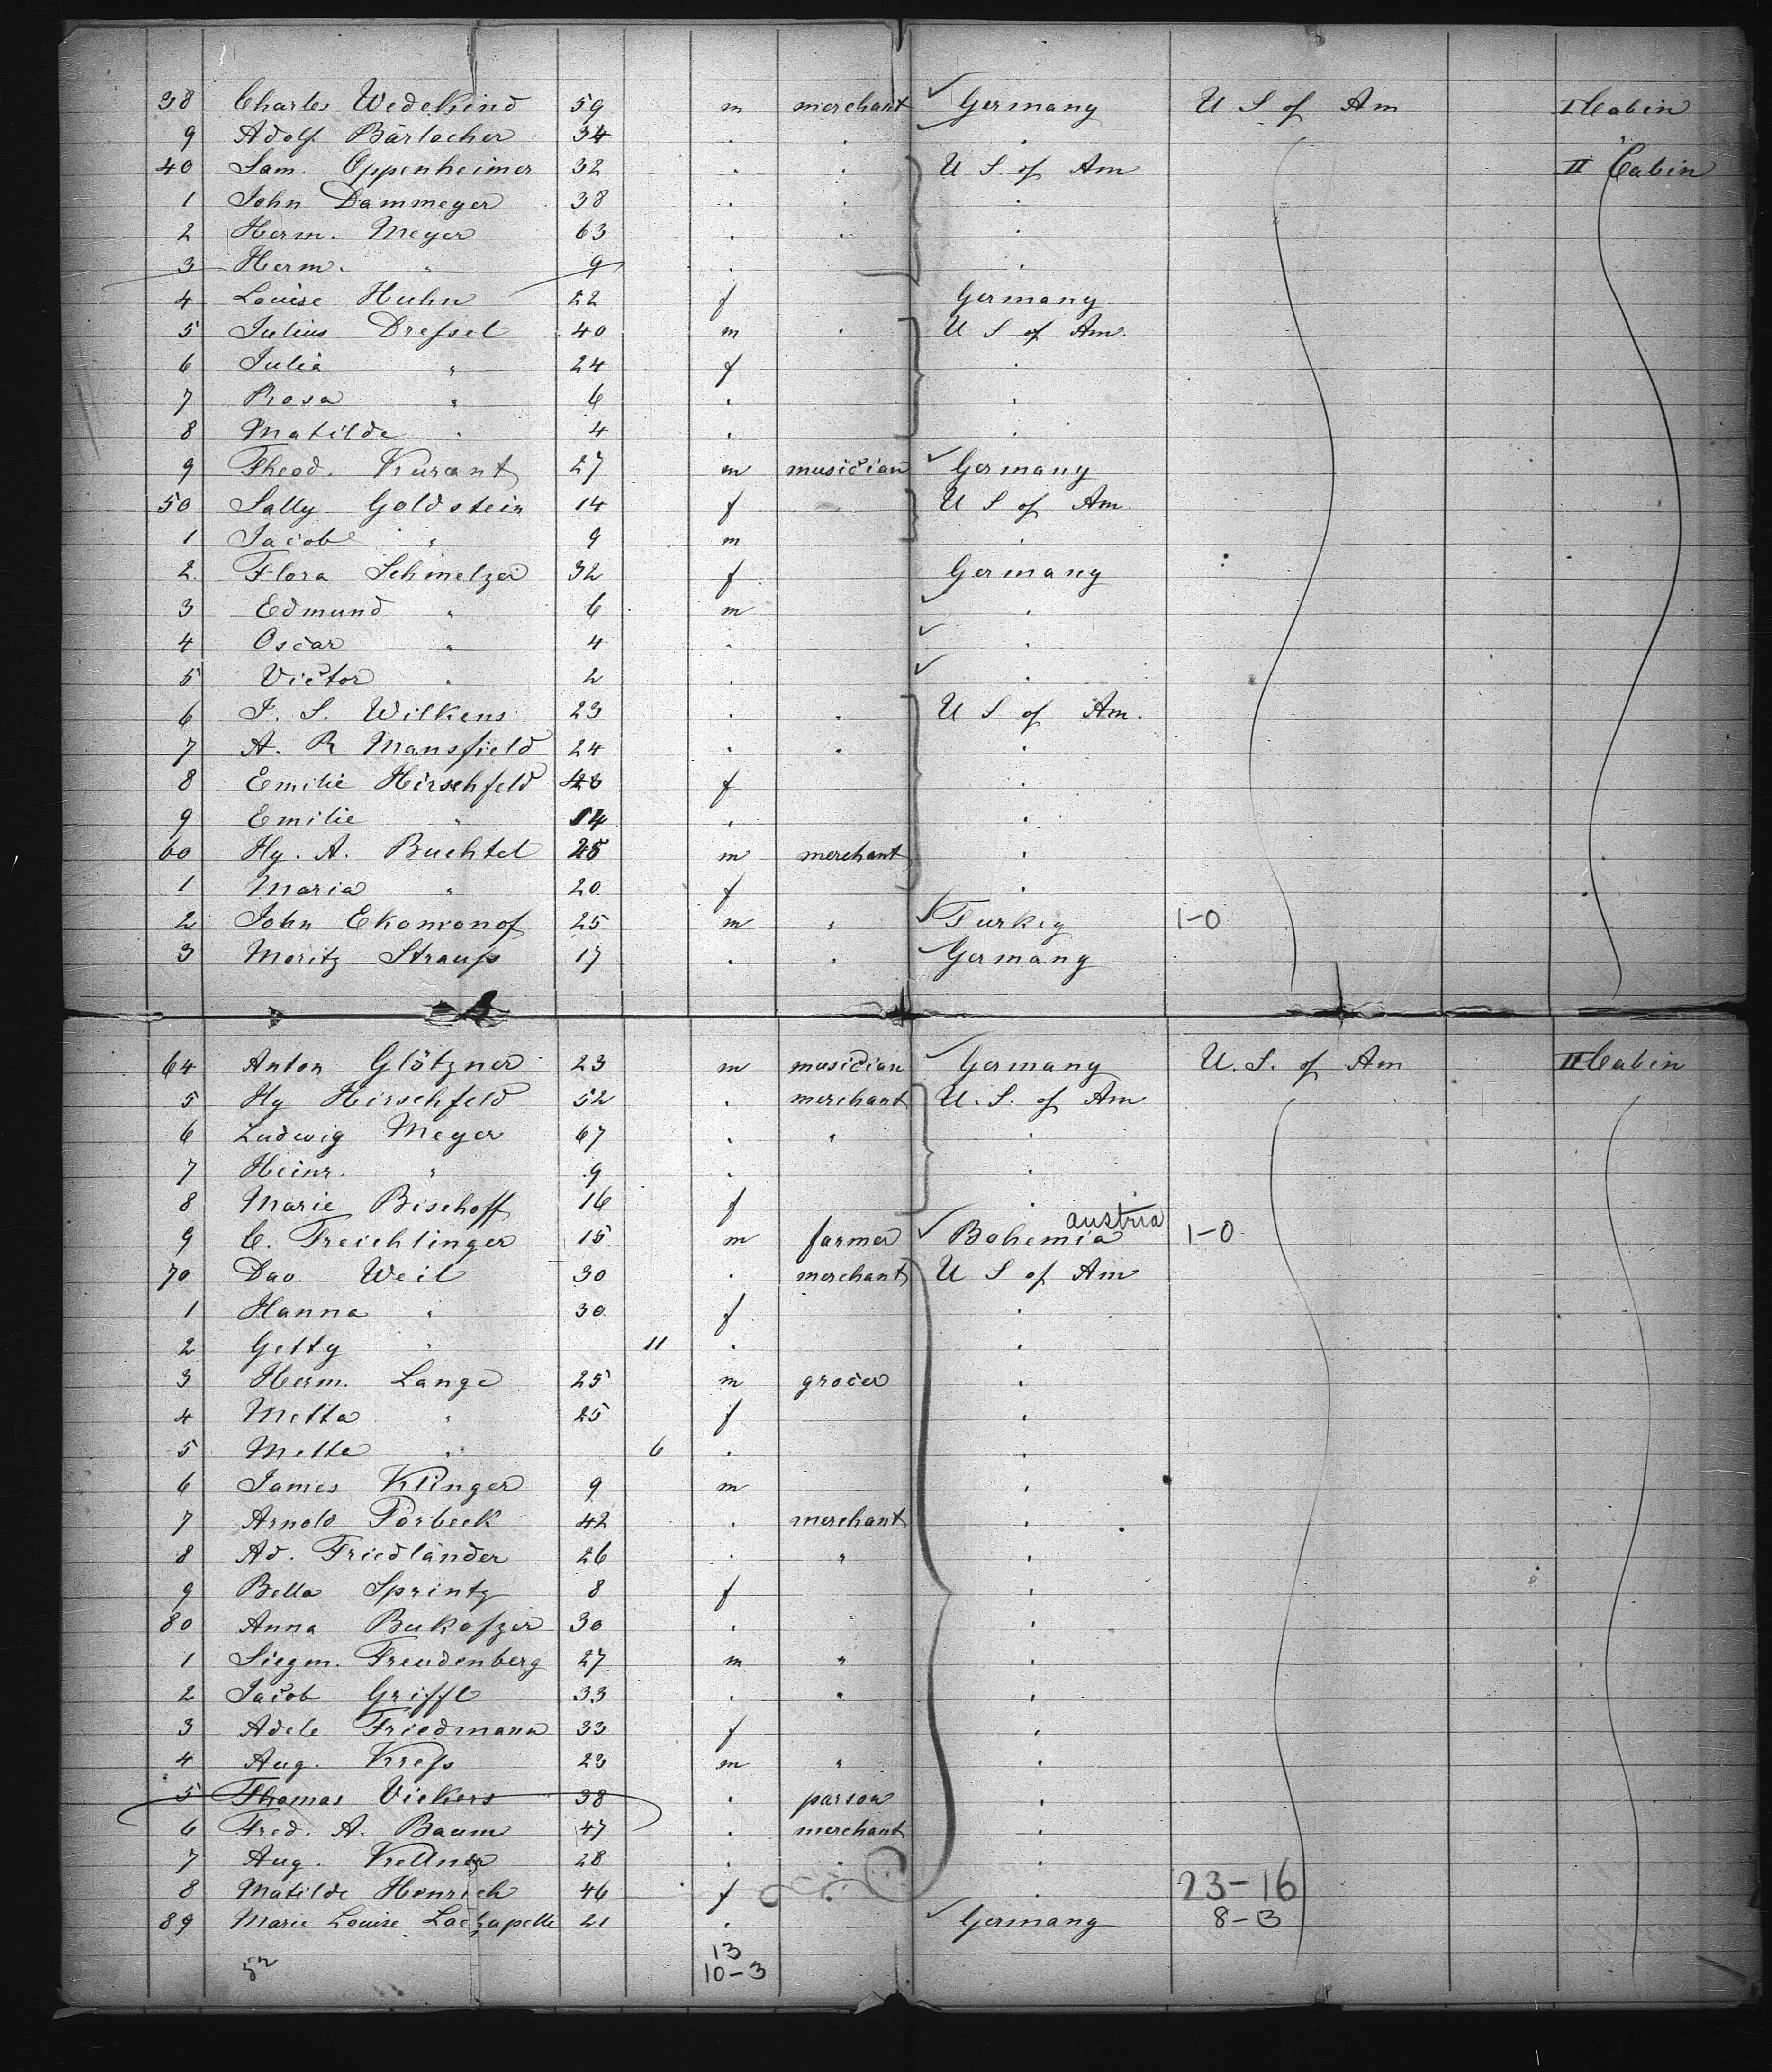 38 Charles Wedekind 59 m merchant ✓ Germany U S of Am I Cabin
9 Adolf Bärlocher 34 . . ✓ . "
40 Sam. Oppenheimer 32 . . U S. of Am II Cabin
1 John Dammeyer 38 . . .
2 Herm. Meyer 63 . . .
3 Herm. " 9 . .
4 Louise Huhn 22 f Germany
5 Julius Dreſsel 40 m . U S of Am.
6 Julia " 24 f .
7 Rosa " 6 . .
8 Matilde " 4 . .
9 Theod. Kurant 27 m musician ✓ Germany
50 Sally Goldstein 14 f . U S of Am.
1 Jacob " 9 m .
2. Flora Schmelzer 32 f Germany
3 Edmund " 6 m ✓ .
4 Oscar " 4 . ✓ .
5 Victor " 2 . ✓ .
6 J. S. Wilkens 23 . . U S of Am.
7 A. R Mansfield 24 . . .
8 Emilie Hirschfeld f .
9 Emilie " 14 . .
60 Hy. A. Buchtel 25 m merchant .
1 Maria " 20 f .
2 John Ekomonof 25 m " ✓ Turkey 1-0
3 Moritz Strauſs 17 . . ✓ Germany
64 Anton Glötzner 23 m musician ✓ Germany U. S. of Am II Cabin
5 Hy Hirschfeld 52 . merchant U. S. of Am
6 Ludwig Meyer 67 . " .
7 Heinr. " 9 . .
8 Marie Bischoff 16 f .
austria
9 C. Treichlinger 15 m farmer ✓ Bohemia 1-0
70 Dav. Weil 30 . merchant U S of Am
1 Hanna " 30 f .
2 Getty " 11 . .
3 Herm. Lange 25 m grocer .
4 Metta " 25 f .
5 Metta " 6 . .
6 James Klinger 9 m .
7 Arnold Porbeck 42 . merchant .
8 Ad. Friedländer 26 . " .
9 Bella Sprintz 8 f .
80 Anna Bukofzer 30 . .
1 Siegm. Freudenberg 27 m " .
2 Jacob Griffl 33 . " .
3 Adele Friedmann 33 f .
4 Aug. Kreſs 23 m " .
5 Thomas Vickers 38 . parson .
6 Fred. A. Baum 47 . merchant .
7 Aug. Kellner 28 . . .
8 Matilde Henrich 46 f . 23-16
89 Marie Louise Lachapelle 21 . ✓ Germany 8-3
13
10-3